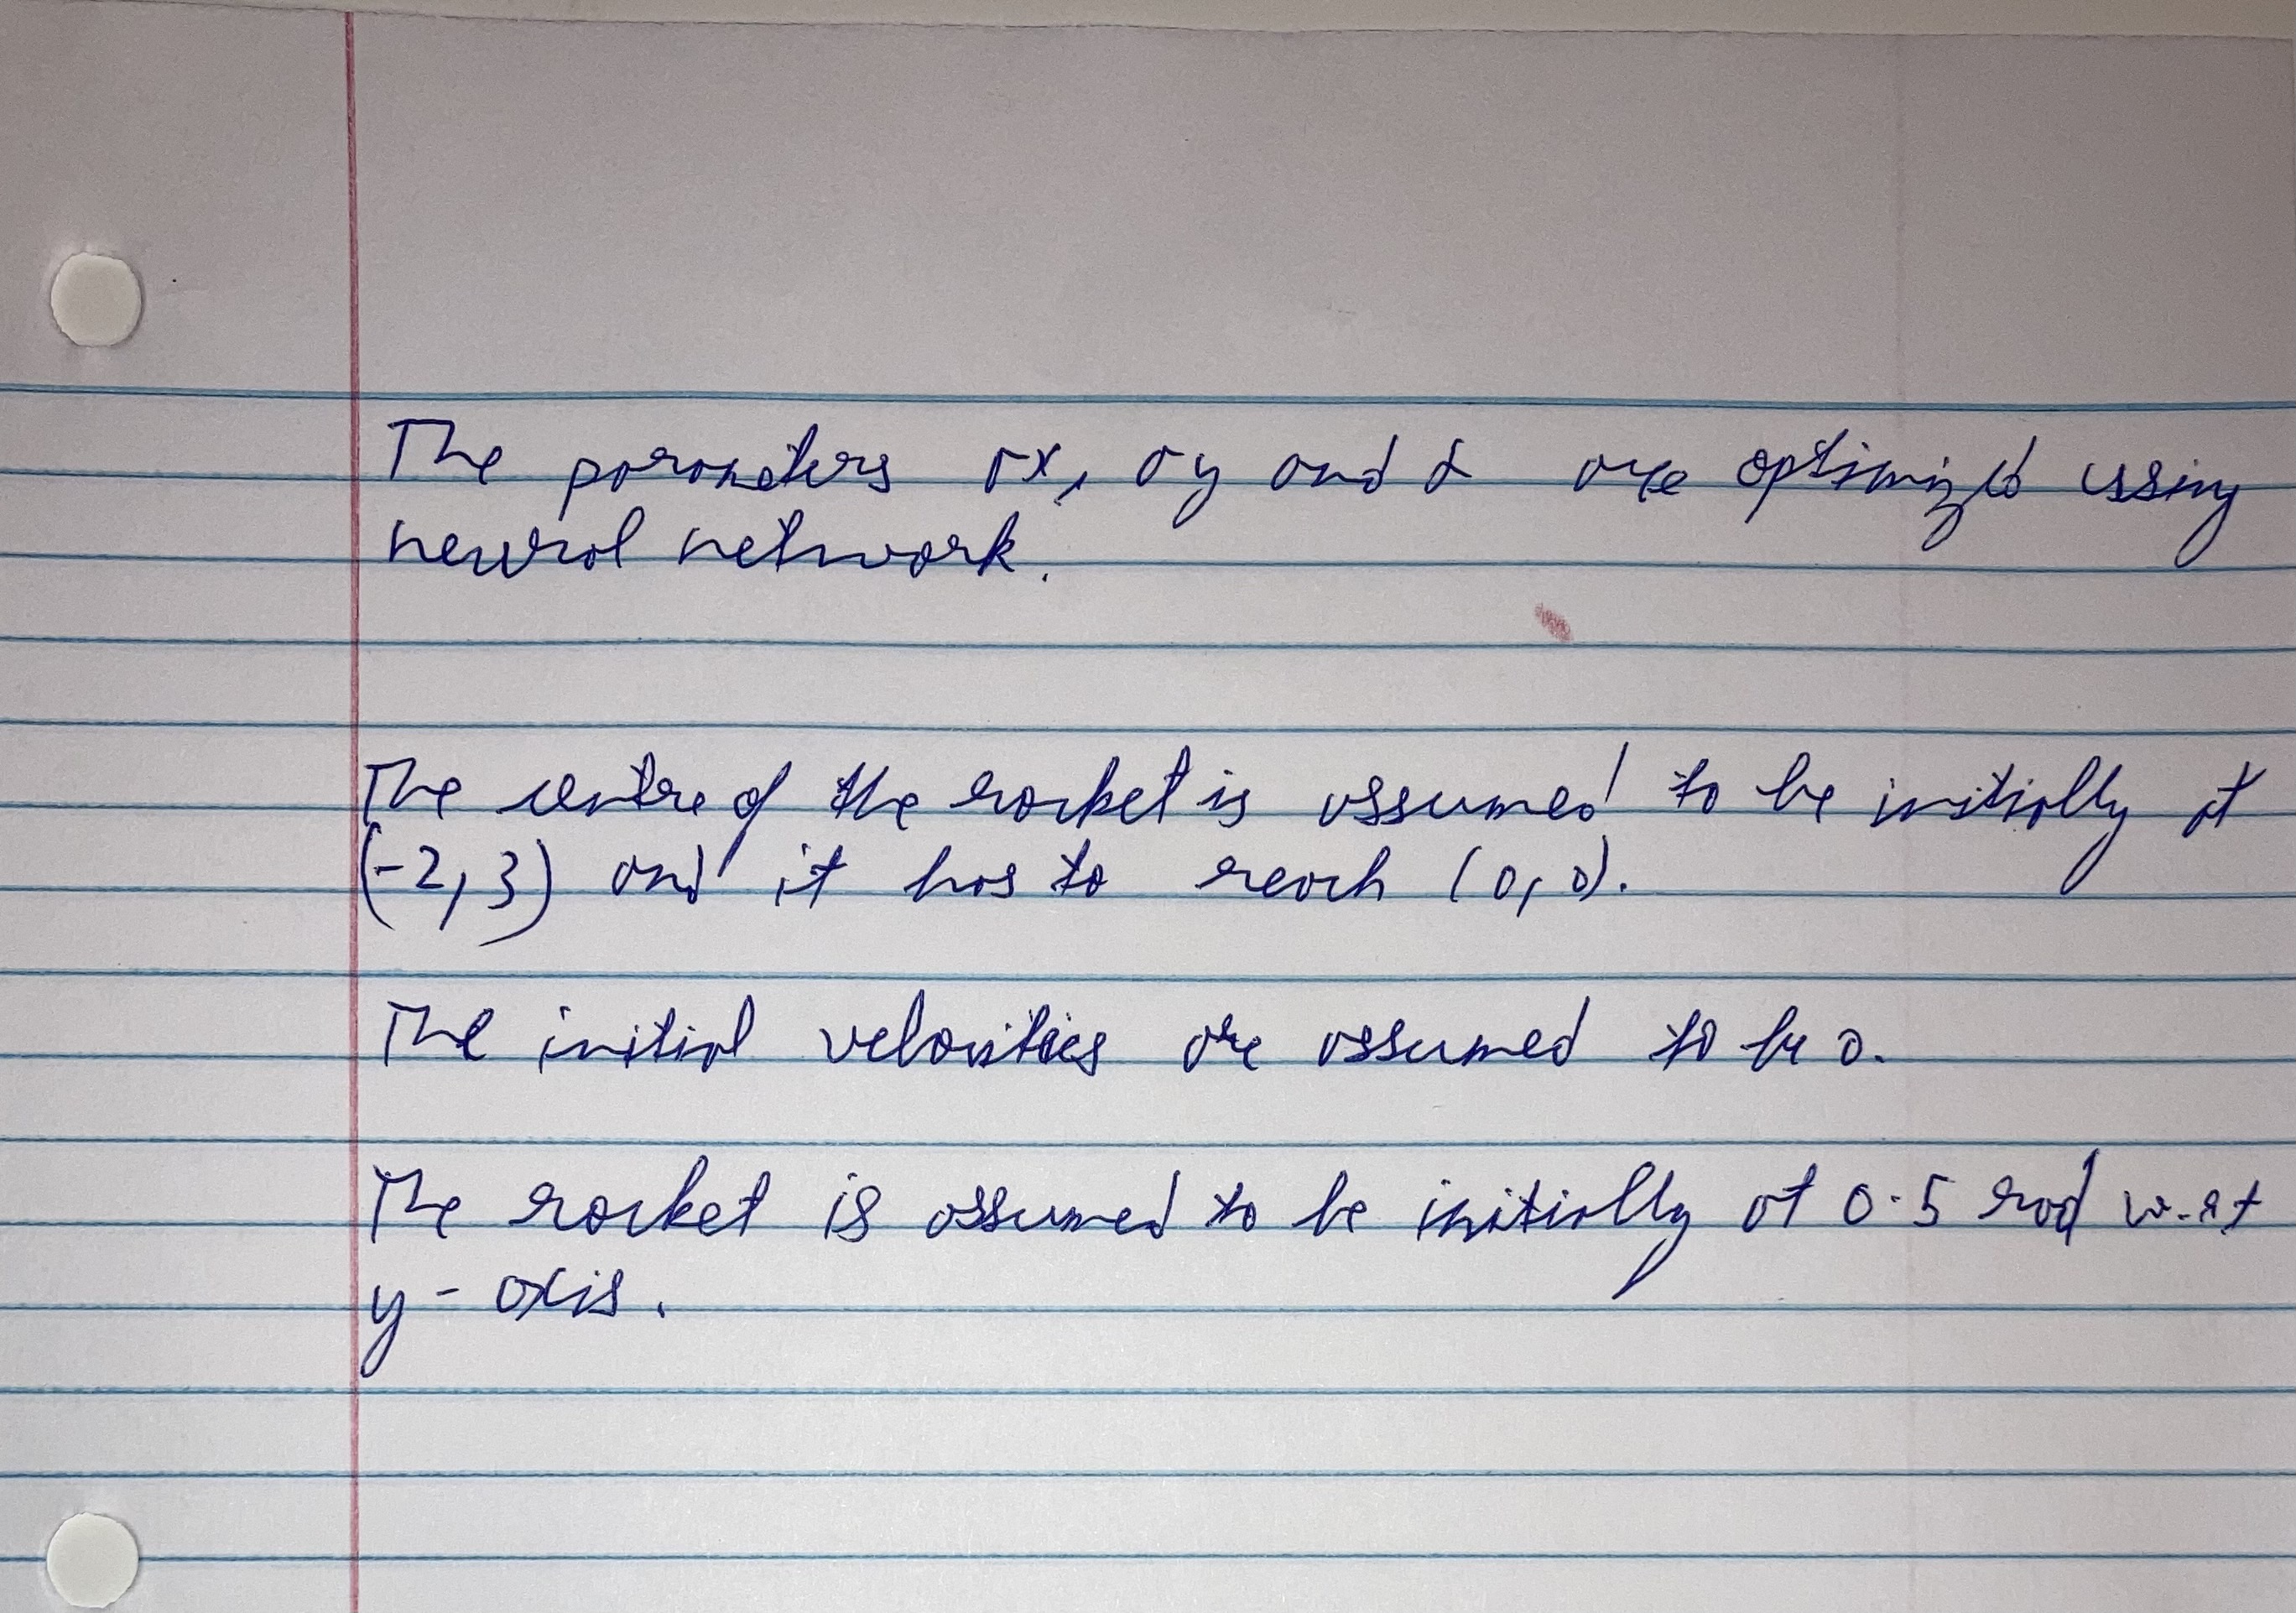 The parameters σx, σy and α are optimized using
neural network.
The centre of the rocket is assumed to be initially at
(-2, 3) and it has to reach (0, 0).
The initial velocities are assumed to be 0.
The rocket is assumed to be initially at 0.5 rad w.r.t
y-axis.